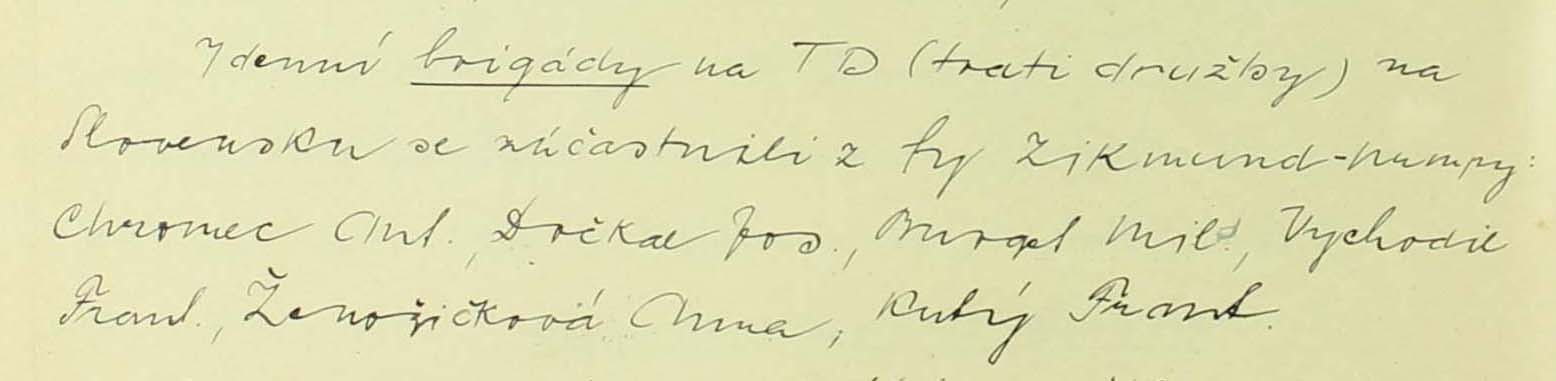 7denní brigády na TD (trati družby) na
Slovensku se zúčastnili z fy Zikmund-pumpy:
Chromec Ant., Dočkal Jos., Burget Mil., Vychodil
Frant., Ženožičková Anna, Kutý Frant.